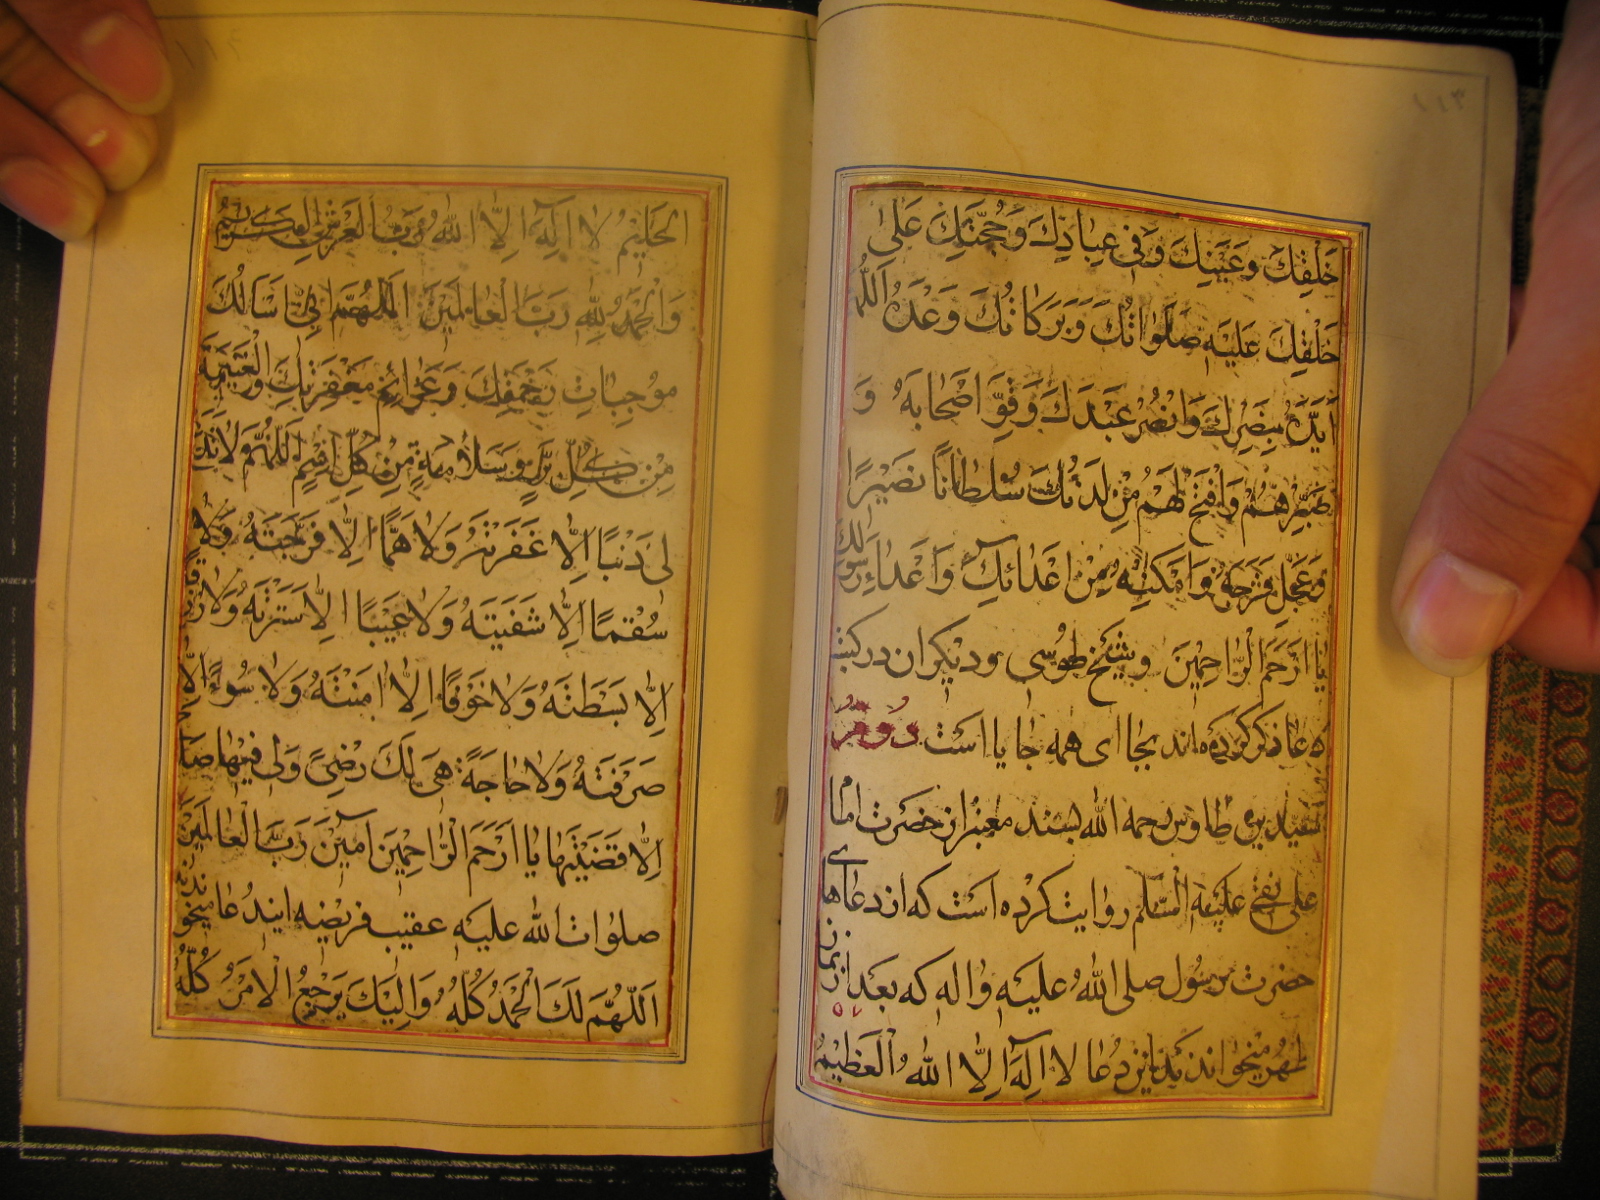 ۱۱۳
خَلْقِكَ وَعَيْنِكَ وَفى عِبادِكَ وَحُجَّتِكَ عَلىٰ
خَلْقِكَ عَلَيْهِ صَلَواتُكَ وَبَرَكاتُكَ وَعْدَهُ اَللّٰهُمَّ
اَيِّدْهُ بِنَصْرِكَ وَانْصُرْ عَبْدَكَ وَقَوِّ اَصْحابَهُ وَ
صَبِّرْهُمْ وَافْتَحْ لَهُمْ مِنْ لَدُنْكَ سُلْطانًا نَصيرًا
وَعَجِّلْ فَرَجَهُ وَاَمْكِنْهُ مِنْ اَعْدائِكَ وَاَعْداءِ رَسُولِكَ
يا اَرْحَمَ الرّاحِمينَ وشيخ طوسى وديكران در كتب
دعا ذكر كرده اند بجاى همه جا يا است
سيد بن طاوس رحمه الله بسند معتبر از حضرت امام
على نقى عليه السلام روايت كرده است كه از دعاهاى
حضرت رسول صلى الله عليه واله كه بعد از نماز
ظهر ميخواندند اين دعا لا اِلٰهَ اِلَّا اللهُ الْعَظيمُ
الْحَليمُ لا اِلٰهَ اِلَّا اللهُ رَبُّ الْعَرْشِ الْكَريمُ
وَالْحَمْدُ لِلّٰهِ رَبِّ الْعالَمينَ اَللّٰهُمَّ اِنّى اَسْاَلُكَ
مُوجِباتِ رَحْمَتِكَ وَعَزائِمَ مَغْفِرَتِكَ وَالْغَنيمَةَ
مِنْ كُلِّ بِرٍّ وَسَلامَةٍ مِنْ كُلِّ اِثْمٍ اَللّٰهُمَّ لاتَدَعْ
لى ذَنْبًا اِلّا غَفَرْتَهُ وَلاهَمًّا اِلّا فَرَّجْتَهُ وَلا
سُقْمًا اِلّا شَفَيْتَهُ وَلاعَيْبًا اِلّا سَتَرْتَهُ وَلارِزْقًا
اِلّا بَسَطْتَهُ وَلاخَوْفًا اِلّا امَنْتَهُ وَلا سُوءًا اِلّا
صَرَفْتَهُ وَلاحاجَةً هِىَ لَكَ رِضًى وَلى فيها صَلاحٌ
اِلّا قَضَيْتَها يا اَرْحَمَ الرّاحِمينَ آمينَ رَبَّ الْعالَمينَ
صلوات الله عليه عقيب فريضه ايندعا ميخواندند
اَللّٰهُمَّ لَكَ الْحَمْدُ كُلُّهُ وَاِلَيْكَ يَرْجِعُ الْاَمْرُ كُلُّهُ